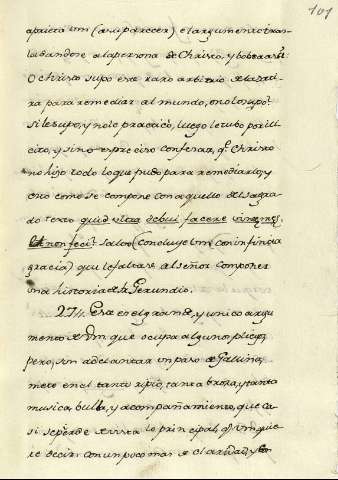 101
aprieta Vm (a su parecer) el argumento tras-
ladandose a la persona de Christo, y bobea assi:
O christo supo este raro arbitrio de la sati-
ra para remediar al mundo, o no lo supo?
si le supo, y no le practicò, luego le tubo por ili-
cito, y si no es preciso confesar, q.e Christo
no hizo todo lo que pudo para remediarlo, y
esto como se compone con aquello del sagra-
do texto quid ultra debui facere vineæ meæ,
et non feci? salvo (concluye Vm con infinita
gracia) que le faltase al señor componer
una historia de fr. Gerundio.
274. Este es el grande, y unico argu-
mento de Vm que ocupa algunos pliegos,
pero, sin adelantar un paso de Gallina,
mete en el tanto ripio, tanta broza, y tanta
musica, bulla, y acompañamiento, que ca-
si se pierde de vista lo principal, q.e Vm quie-
re decir con un poco mas de claridad, y